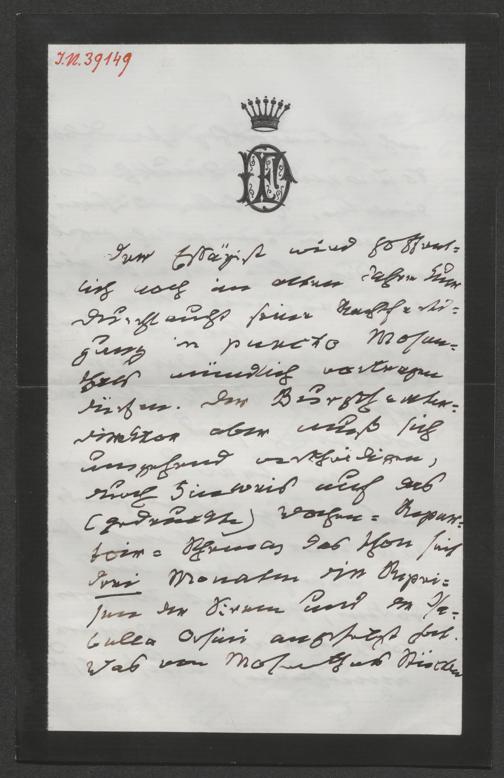 I.N. 39149
Der Essayist wird hoffent-
lich noch im alten Jahre Euer
Durchlaucht seine Rechtferti-
gung in puncto Mosen-
thals mündlich vortragen
dürfen. Der Burgtheater-
direktor aber muß sich
umgehend vertheidigen,
durch Hinweis auf das
(gedruckte) Wochen-Reper-
toir-Schema, das schon seit
drei Monaten die Repri-
sen der Sirene und der Isa-
bella Orsini angesetzt hat.
Was von Mosenthals Stücken